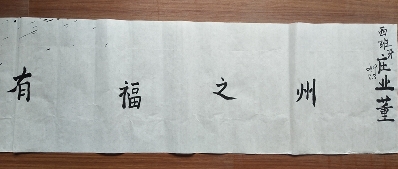 有福之州
西班牙
庄业董